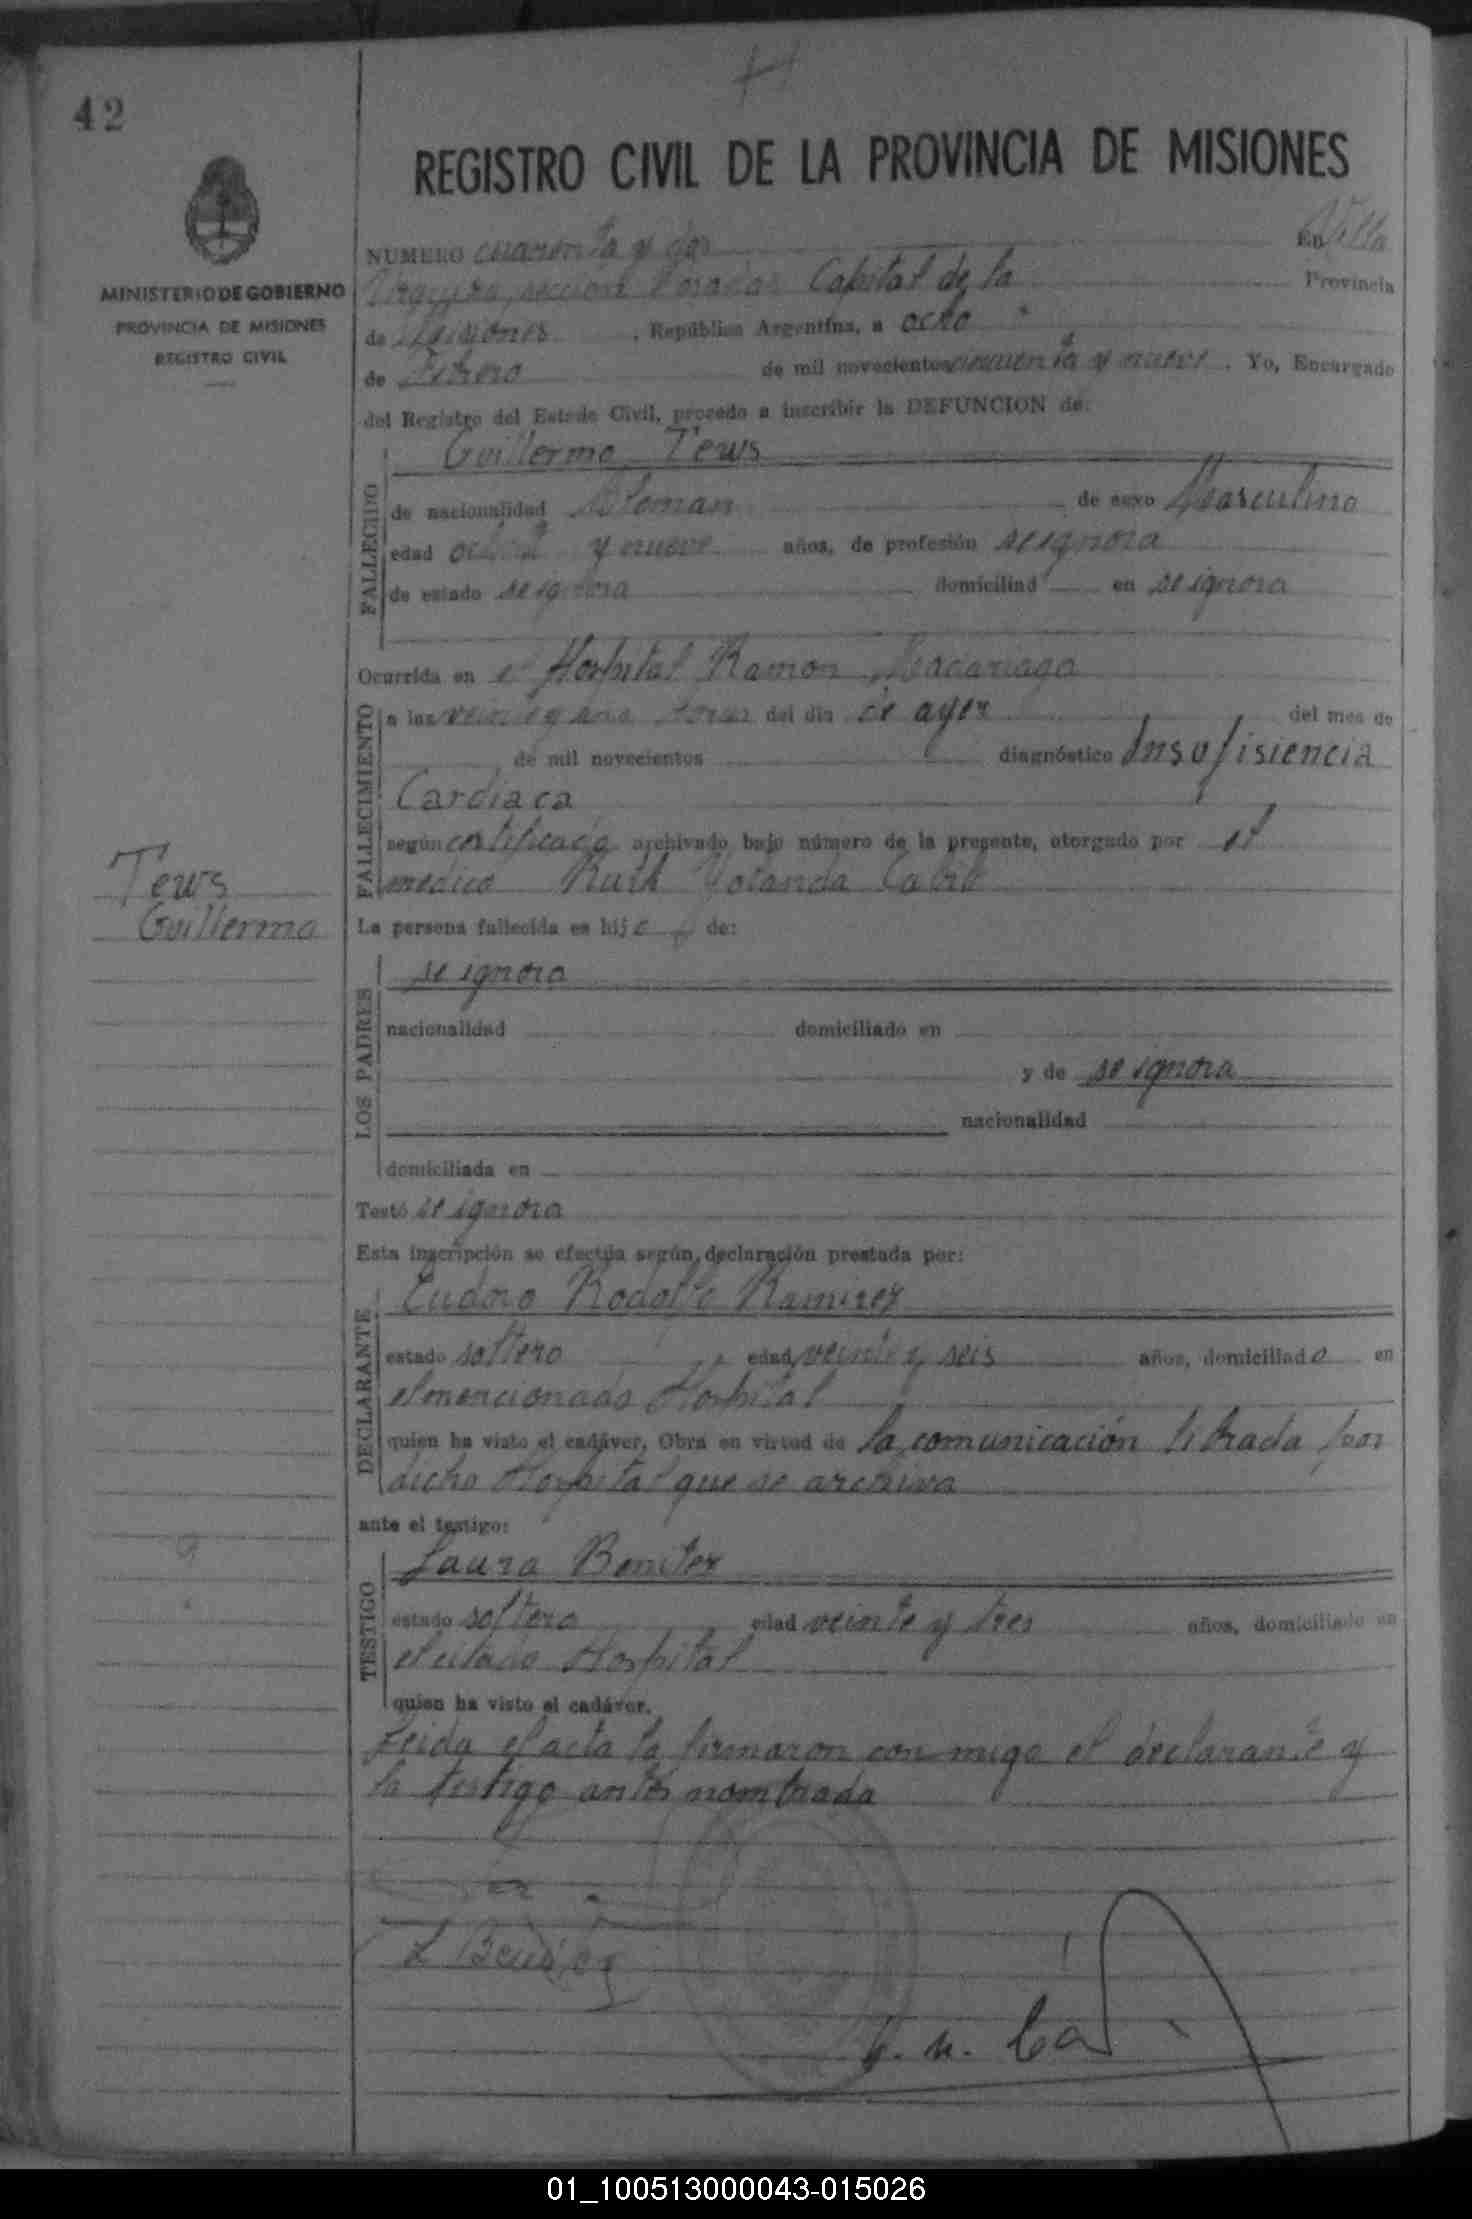 42
REGISTRO CIVIL DE LA PROVINCIA DE MISIONES
MINISTERIO DE GOBIERNO
PROVINCIA DE MISIONES
REGISTRO CIVIL
NUMERO cuarenta y dos En Villa
Urquiza, sección Posadas Capital de la Provincia
de Misiones, República Argentina, a ocho
de Febrero de mil novecientos cincuenta y nueve. Yo, Encargado
del Registro del Estado Civil, procedo a inscribir la DEFUNCION de:
Guillermo Tews
FALLECIDO
de nacionalidad Aleman de sexo Masculino
edad y nueve años, de profesión se ignora
de estado se ignora domiciliad en se ignora
Ocurrida en el Hospital Ramon Madariaga
FALLECIMIENTO
a las veinte y una horas del día de ayer del mes de
de mil novecientos diagnóstico Insufisiencia
Cardiaca
según certificado archivado bajo número de la presente, otorgado por el
medico Ruth Yolanda
Tews
Guillermo
La persona fallecida es hijo de:
LOS PADRES
se ignora
nacionalidad domiciliado en
y de se ignora
nacionalidad
domiciliada en
Testó se ignora
Esta inscripción se efectúa según declaración prestada por:
DECLARANTE
Eudoro Rodolfo Ramirez
estado soltero edad veinte y seis años, domiciliado en
el mencionado Hospital
quien ha visto el cadáver, Obra en virtud de la comunicación librada por
dicho Hospital que se archiva
ante el testigo:
TESTIGO
Laura Benitez
estado soltera edad veinte y tres años, domiciliado en
el citado Hospital
quien ha visto el cadáver.
Leida el acta la firmaron con migo el declarante y
la testigo antes nombrada
L Benitez
01_100513000043-015026